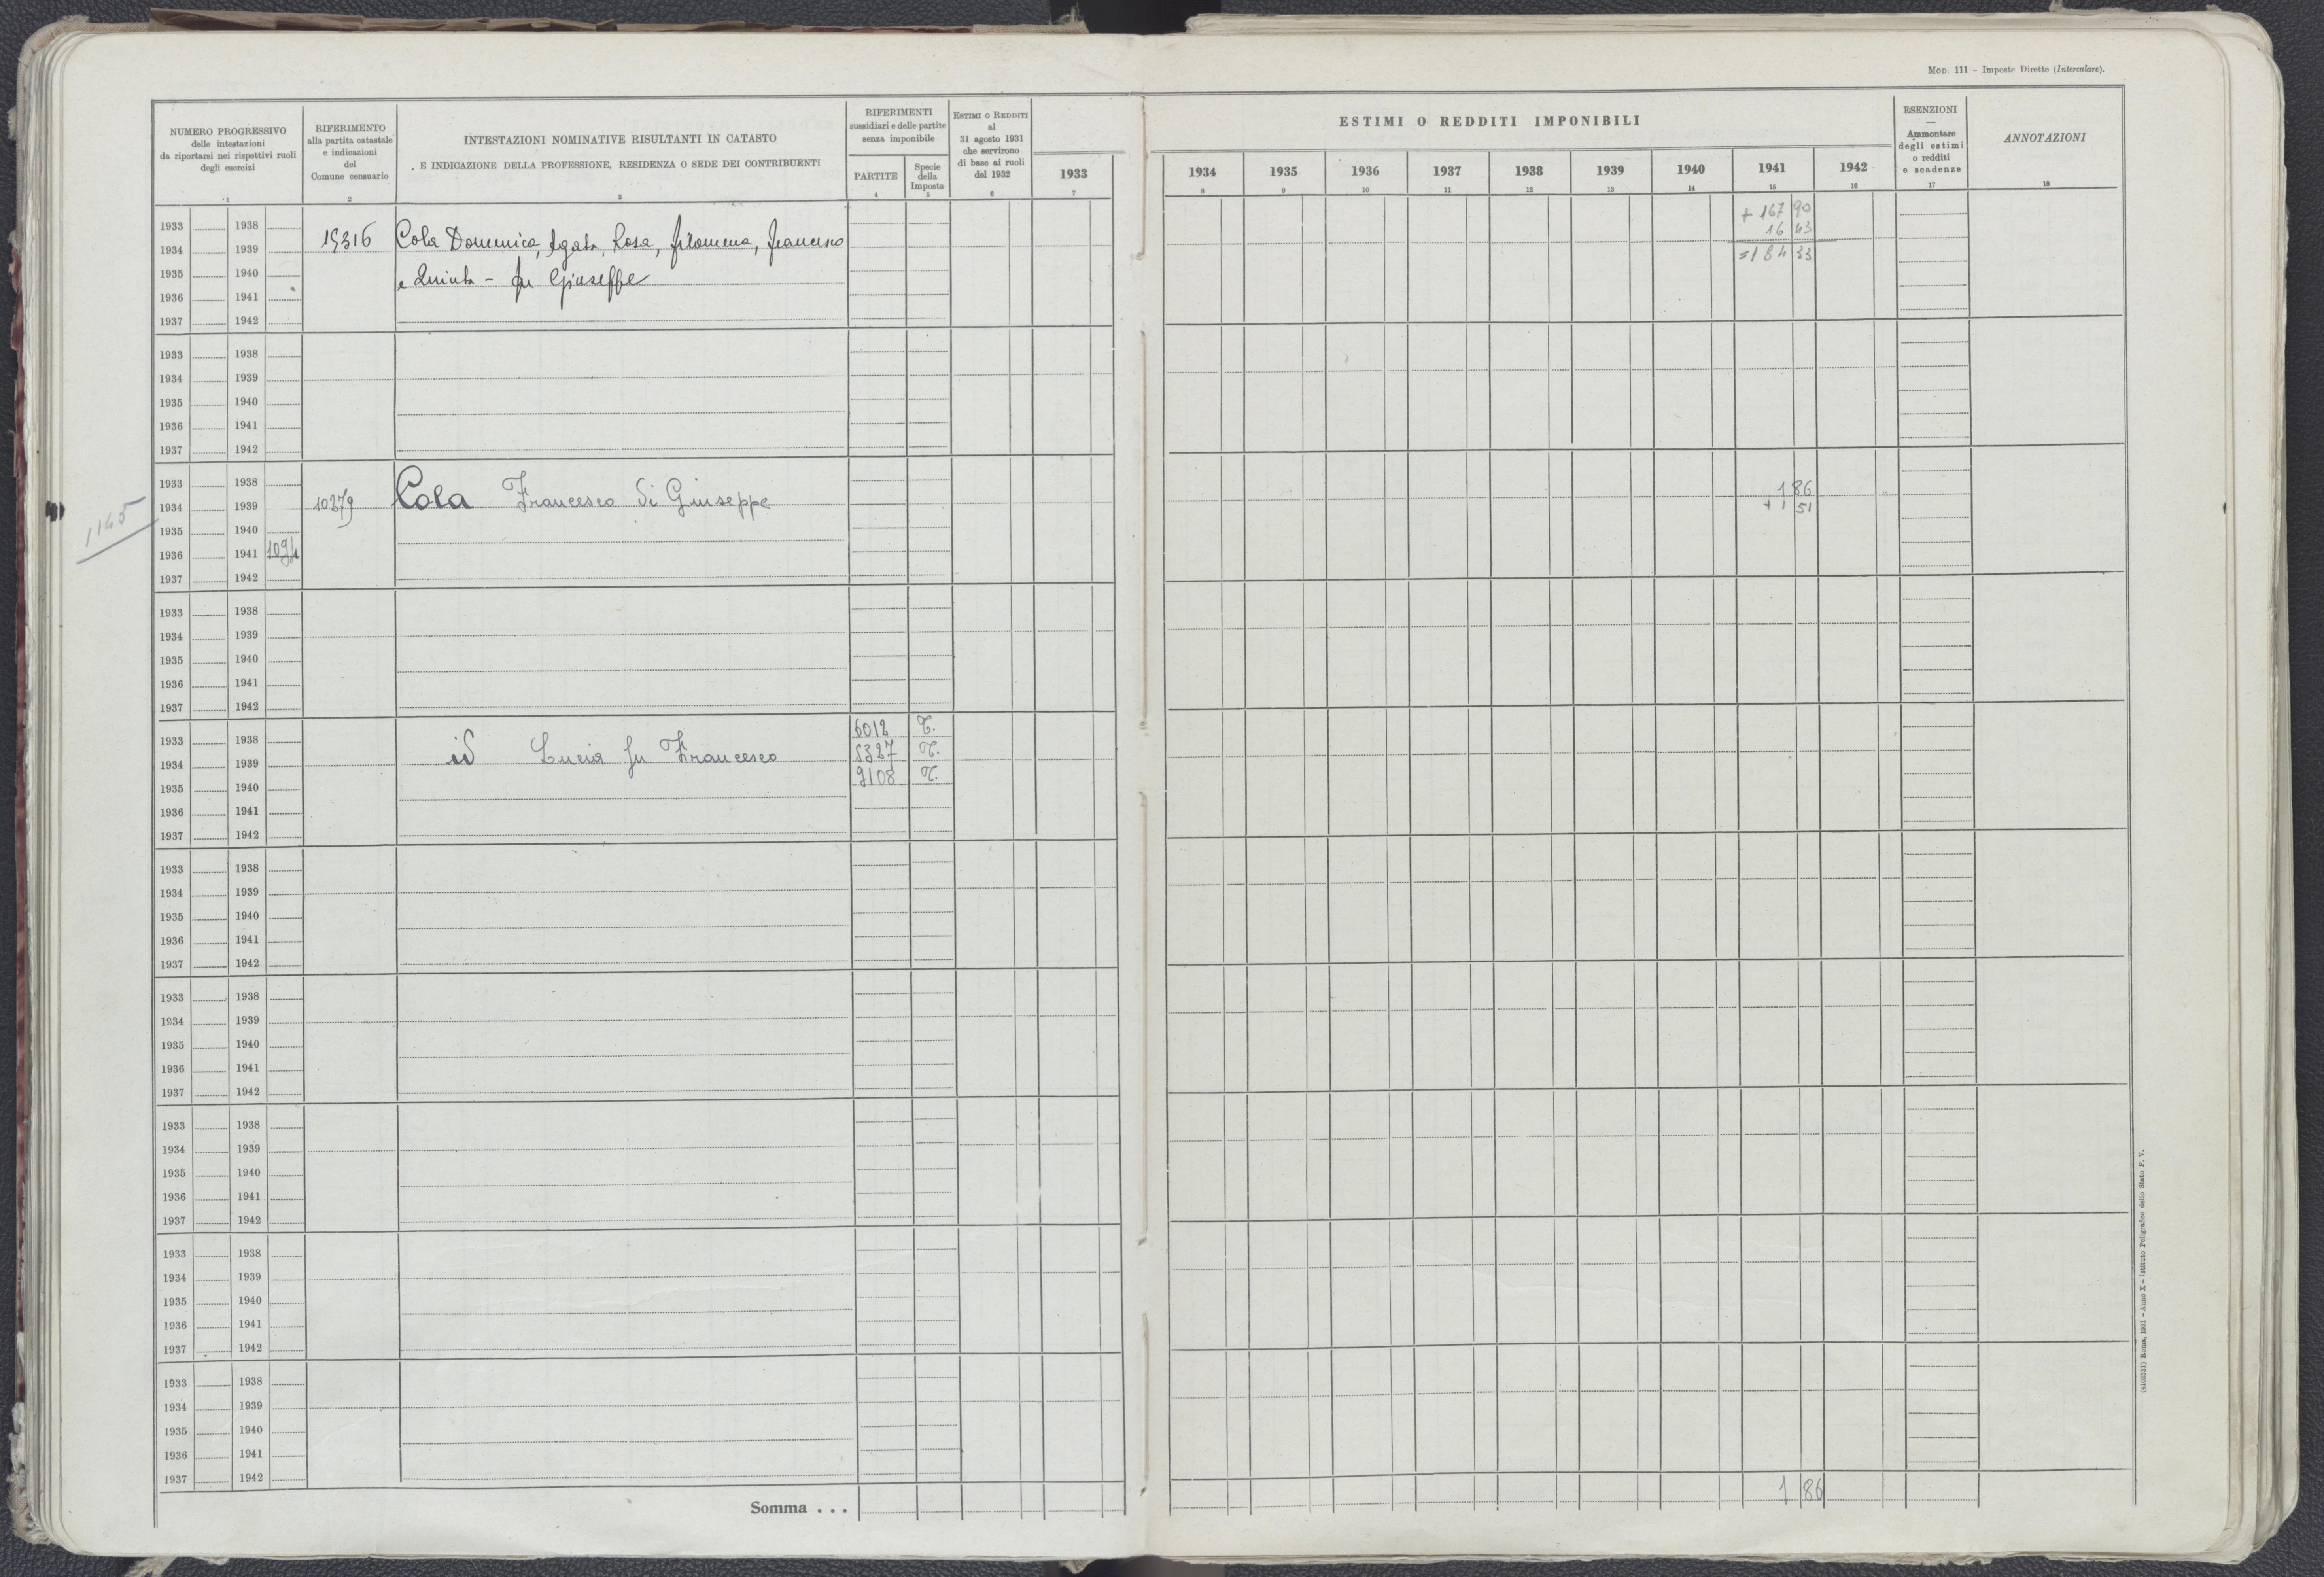 Mod. 111 – Imposte Dirette (Intercalare).
NUMERO PROGRESSIVO
delle intestazioni
da riportarsi nei rispettivi ruoli
degli esercizi
1
RIFERIMENTO
alla partita catastale
e indicazioni
del
Comune censuario
2
INTESTAZIONI NOMINATIVE RISULTANTI IN CATASTO
E INDICAZIONE DELLA PROFESSIONE, RESIDENZA O SEDE DEI CONTRIBUENTI
3
RIFERIMENTI
sussidiari e delle partite
senza imponibile
PARTITE
4
Specie
della
Imposta
5
Estimi o Redditi
al
31 agosto 1931
che servirono
di base ai ruoli
del 1932
6
1933
7
ESTIMI O REDDITI IMPONIBILI
1934 1935 1936 1937 1938 1939 1940 1941 1942
8 9 10 11 12 13 14 15 16
ESENZIONI
—
Ammontare
degli estimi
o redditi
e scadenze
17
ANNOTAZIONI
18
1933 1938 + 167 90
1934 1939 19316 Cola Domenica, Agata, Rosa, Filomena, Francesco 16 43
= 184 33
1935 1940 e Quinta – fu Giuseppe
1936 1941
1937 1942
1933 1938
1934 1939
1935 1940
1936 1941
1937 1942
1933 1938
1934 1939 10279 Cola Francesco di Giuseppe 1 86
+ 1 51
1145
1935 1940
1936 1941 1094
1937 1942
1933 1938
1934 1939
1935 1940
1936 1941
1937 1942
6012 T.
1933 1938
1934 1939 id Lucia fu Francesco 5327 T.
9108 T.
1935 1940
1936 1941
1937 1942
1933 1938
1934 1939
1935 1940
1936 1941
1937 1942
1933 1938
1934 1939
1935 1940
1936 1941
1937 1942
1933 1938
1934 1939
1935 1940
1936 1941
1937 1942
1933 1938
1934 1939
1935 1940
1936 1941
1937 1942
1933 1938
1934 1939
1935 1940
1936 1941
1937 1942
Somma . . . 1 86
Roma, 1931 – Anno X – Istituto Poligrafico dello Stato P. V.